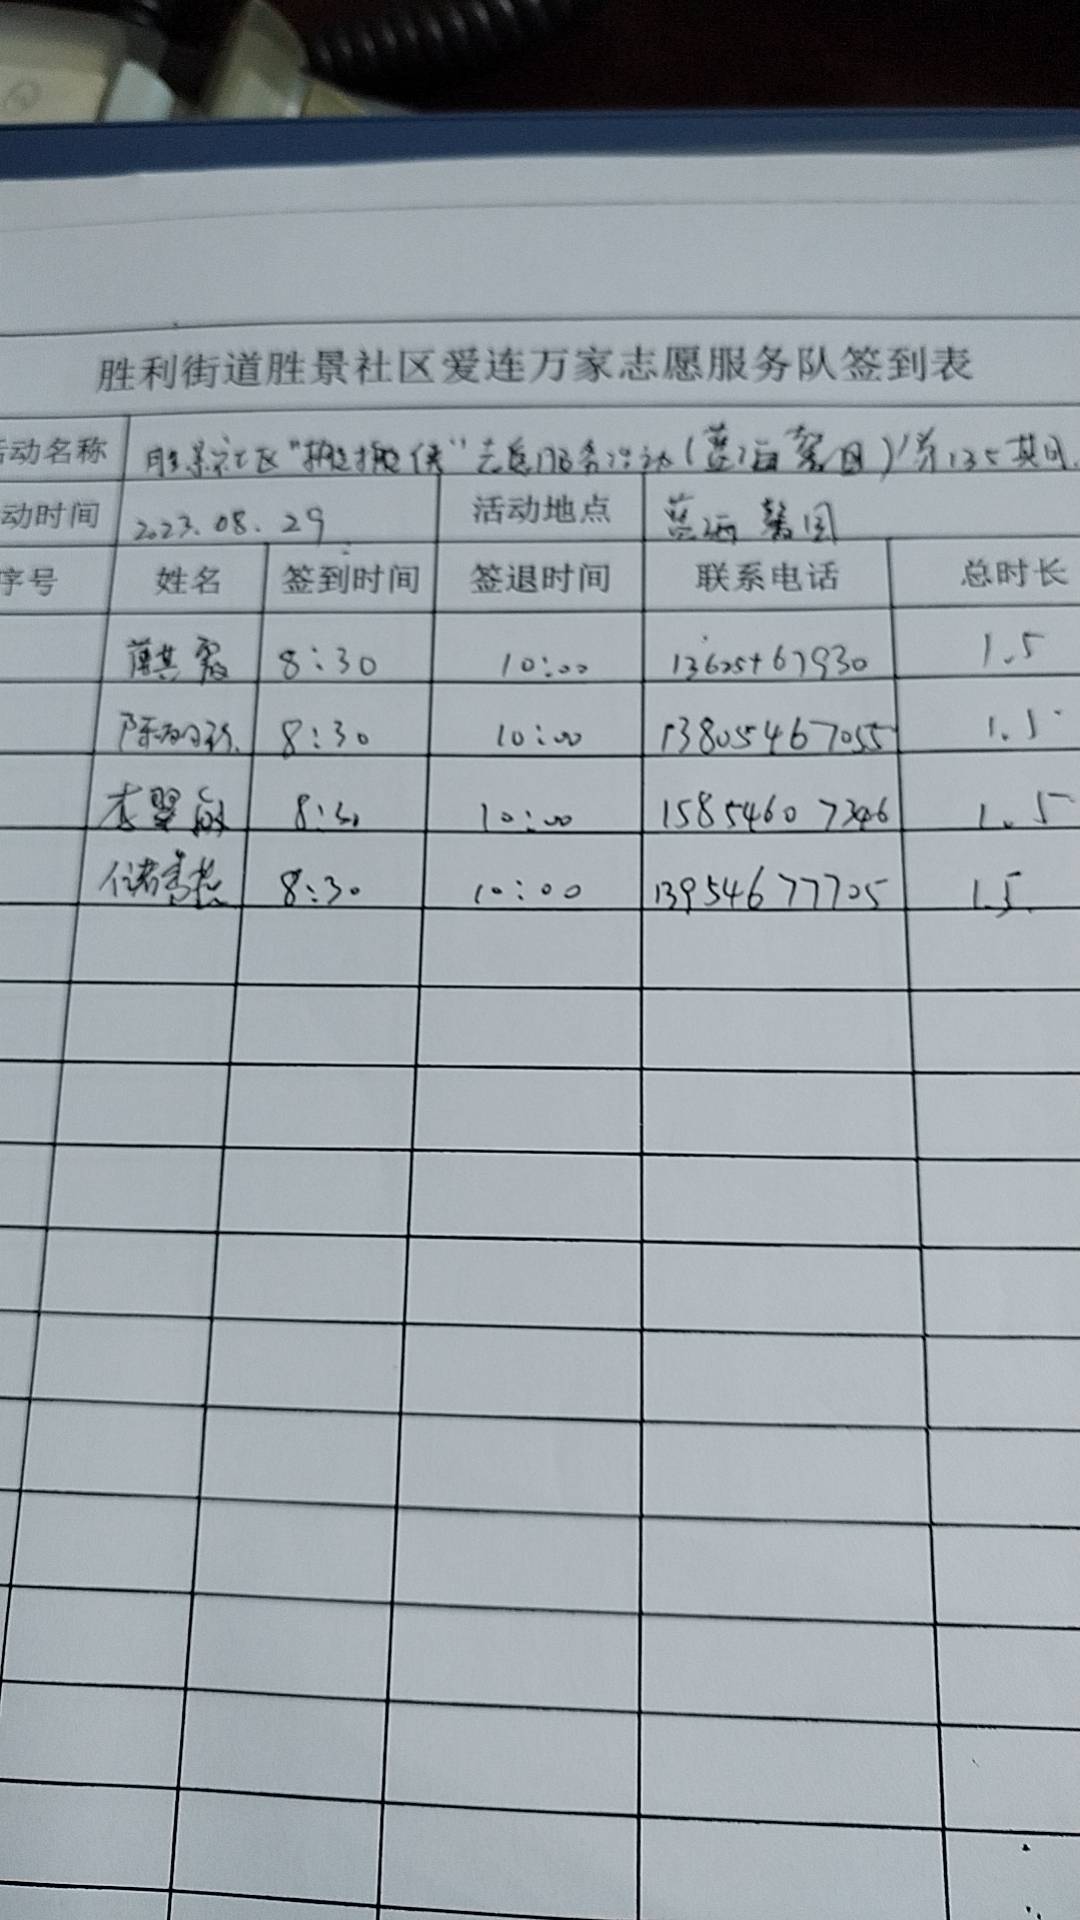 胜利街道胜景社区爱连万家志愿服务队签到表
活动名称 胜景社区"搬搬侠"志愿服务活动(蓝海馨园)第135期
动时间 2023.08.29 活动地点 蓝海馨园
序号 姓名 签到时间 签退时间 联系电话 总时长
薄其霞 8:30 10:00 1.5
8:30 10:00 13805467055 1.5
李翠 8:30 10:00 15854607346 1.5
储秀 8:30 10:00 13954677705 1.5